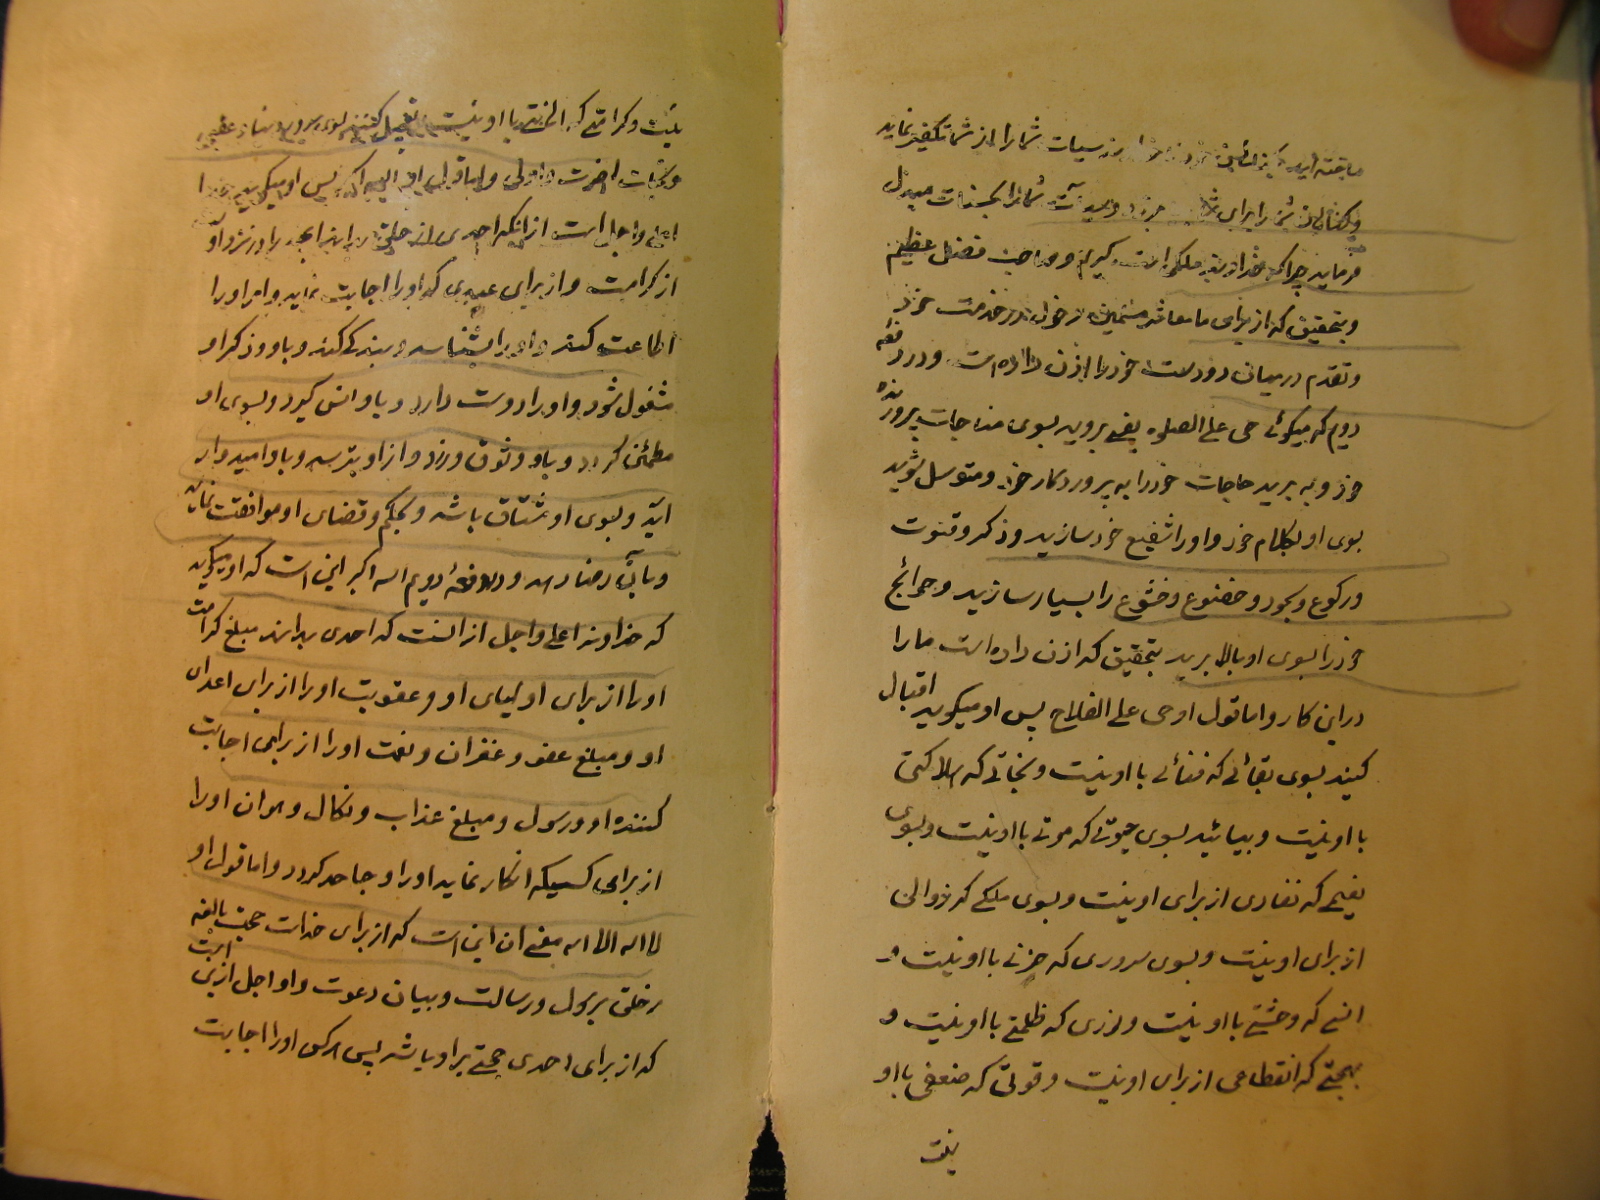 سیات شما را از شما تکفیر نماید
شما را بحسنات مبدل
فرماید چرا که خداوند ملکی است کریم و صاحب فضل عظیم
و بتحقیق که از برای ما معاشر مسلمین دخول در خدمت خود
و تقدم در میان دو دست خود را اذن داده است و در دفعه
دویم که میکوئی حی علی الصلوه یعنی بروید بسوی مناجات پرورنده
خود و به برید حاجات خود را به پروردکار خود و متوسل شوید
بسوی او بکلام خود و او را شفیع خود سازید و ذکر و قنوت
و رکوع و سجود و خضوع و خشوع را بسیار سازید و حوائج
خود را بسوی او بالا برید بتحقیق که اذن داده است ما را
در این کار و اما قول او حی علی الفلاح پس او میکوید اقبال
کنید بسوی بقائی که فنائی با او نیست و نجاتی که هلاکتی
با او نیست و بیائید بسوی حیوتی که موتی با او نیست و بسوی
نعیمی که نفادی از برای او نیست و بسوی ملکی که زوالی
از برای او نیست و بسوی سروری که حزنی با او نیست و
انسی که وحشتی با او نیست و نوری که ظلمتی با او نیست و
بهجتی که انقطاعی از برای او نیست و قوتی که ضعفی با او
نیست
نیست و کرامتی که با او نیست تعجیل کنید بسوی سرور
و نجات اخرت و اولی و اما قول او الله اکبر پس او میکوید خدا
اعلی و اجل است از انکه احدی از خلق بداند انچه را در نزد او
از کرامت و از برای عبدی که او را اجابت نماید و امر او را
اطاعت کند و او را بشناسد و بندکی کند و باو و ذکر او
مشغول شود و او را دوست دارد و باو انس کیرد و بسوی او
مطمئن کردد و باو وثوق ورزد و از او بترسد و باو امیدوار
اید و بسوی او مشتاق باشد و بحکم و قضای او موافقت نماید
و بآن رضا دهد و در دفعهٔ دویم الله اکبر این است که او میکوید
که خداوند اعلی و اجل از انست که احدی بداند مبلغ کرامت
او را از برای اولیای او و عقوبت او را از برای اعدای
او و مبلغ عفو و غفران و نعمت او را از برای اجابت
کننده او و رسول و مبلغ عذاب و نکال و هوان او را
از برای کسیکه انکار نماید او را و جاحد کردد و اما قول او
لا اله الا الله معنی ان این است که از برای خداست حجت بالغه
بر خلق برسول و رسالت و بیان دعوت و او اجل از این است
که از برای احدی حجتی بر او باشد پس هر کس او را اجابت